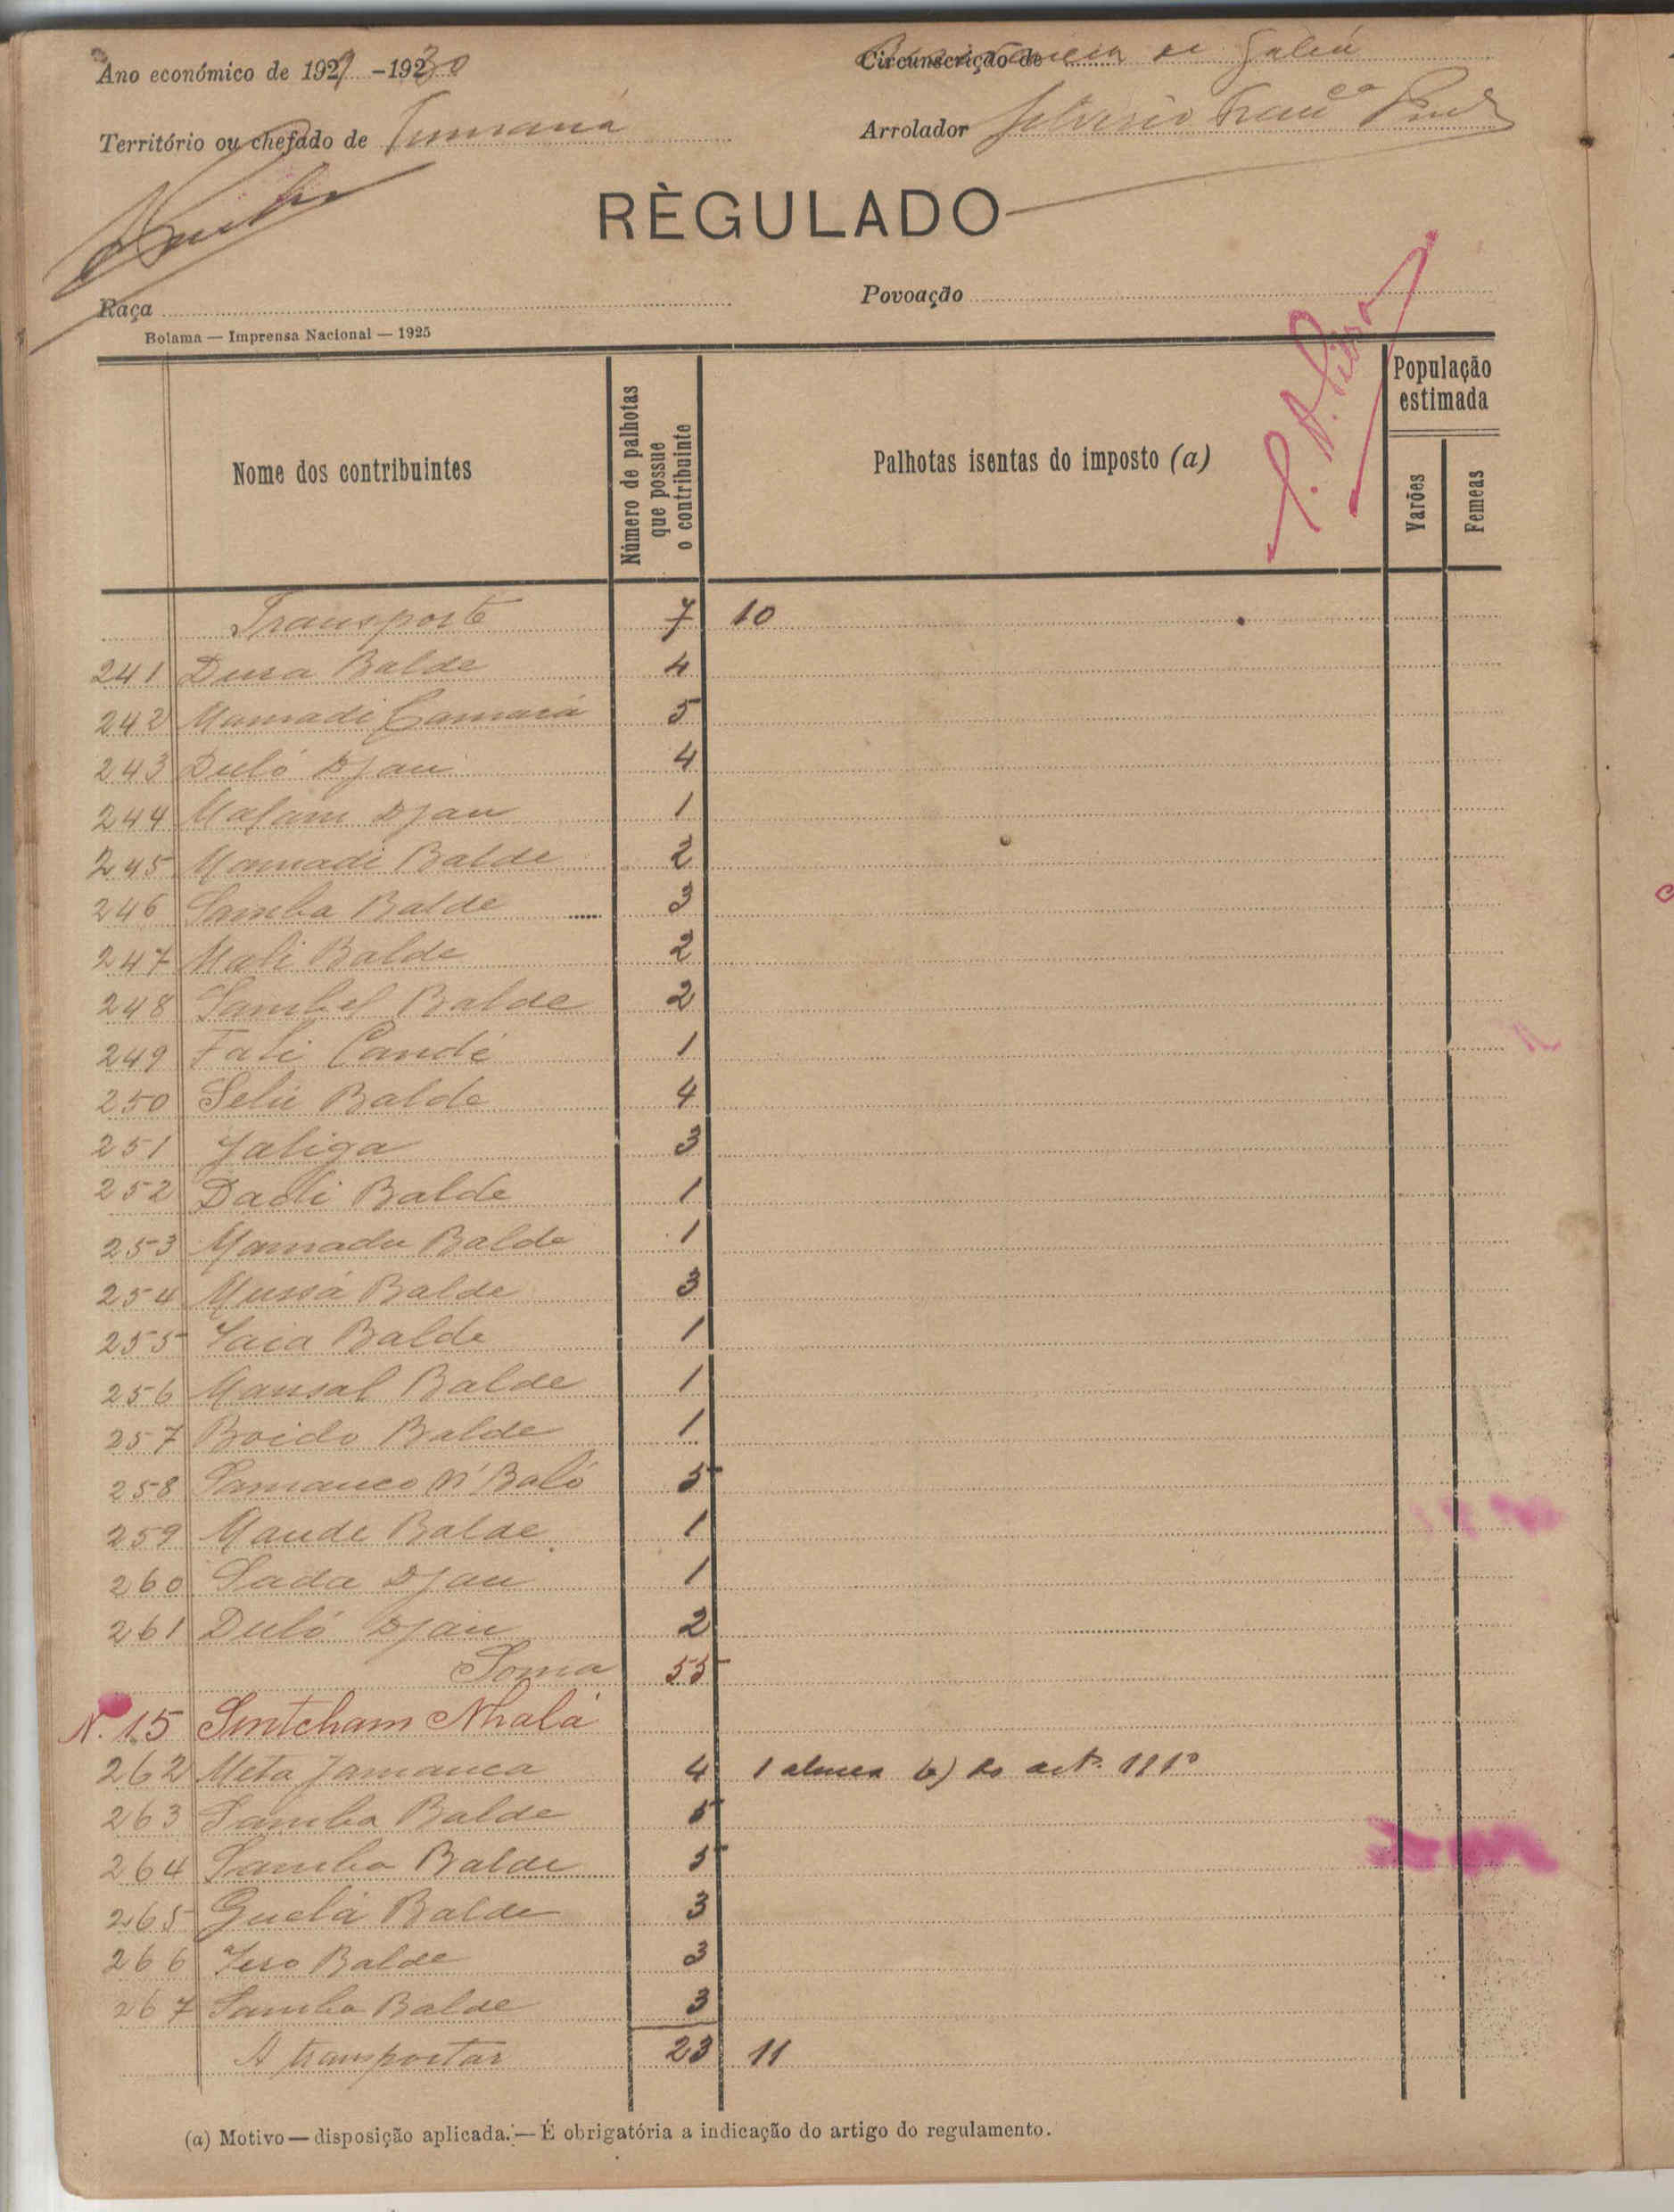 Ano económico de 1929 - 1930
Circunscrição de
Território ou chefado de Tumaná
Arrolador
RÈGULADO
Raça
Povoação
Bolama — Imprensa Nacional — 1925
Nome dos contribuintes
Número de palhotas que possue o contribuinte
Palhotas isentas do imposto (a)
População estimada
Varões
Femeas
Transporte 7 10
241 Dura Balde 4
242 Mamadi Camará 5
243 Duló Djau 4
244 Malam Djau 1
245 Mamadi Balde 2
246 Samba Balde 3
247 Mali Balde 2
248 Sambel Balde 2
249 Fali Candé 1
250 Selu Balde 4
251 Jaliga 3
252 Dadi Balde 1
253 Mamadu Balde 1
254 Mussá Balde 3
255 Saia Balde 1
256 Mansal Balde 1
257 Boido Balde 1
258 Samanco N'Baló 5
259 Maude Balde 1
260 Sada Djau 1
261 Duló Djau 2
Soma 55
N. 15 Sintcham Nhala
262 Meta Jamanca 4 1 alinea b) do artº 111º
263 Samba Balde 5
264 Samba Balde 5
265 Guelá Balde 3
266 Balde 3
267 Samba Balde 3
A transportar 23 11
(a) Motivo — disposição aplicada. — É obrigatória a indicação do artigo do regulamento.